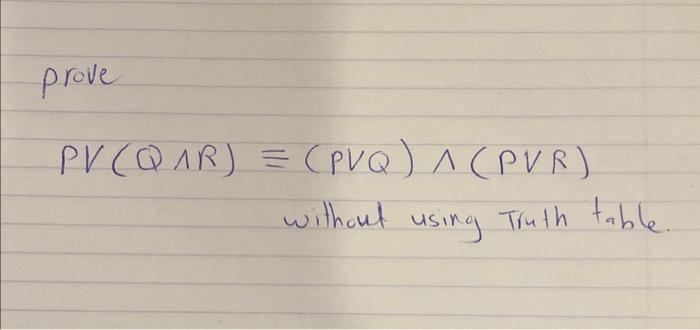 prove
PV(Q∧R) ≡ (PVQ) ∧ (PVR)
without using Truth table.